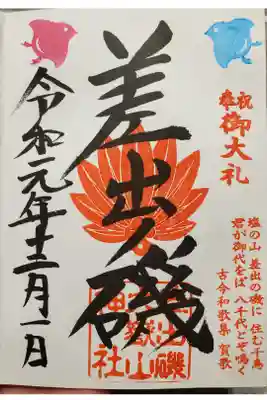 奉祝
御大礼
塩の山 差出の磯に 住む千鳥
君が御代をば 八千代とぞ鳴く
古今和歌集 賀歌
差出ノ磯
令和元年十二月一日